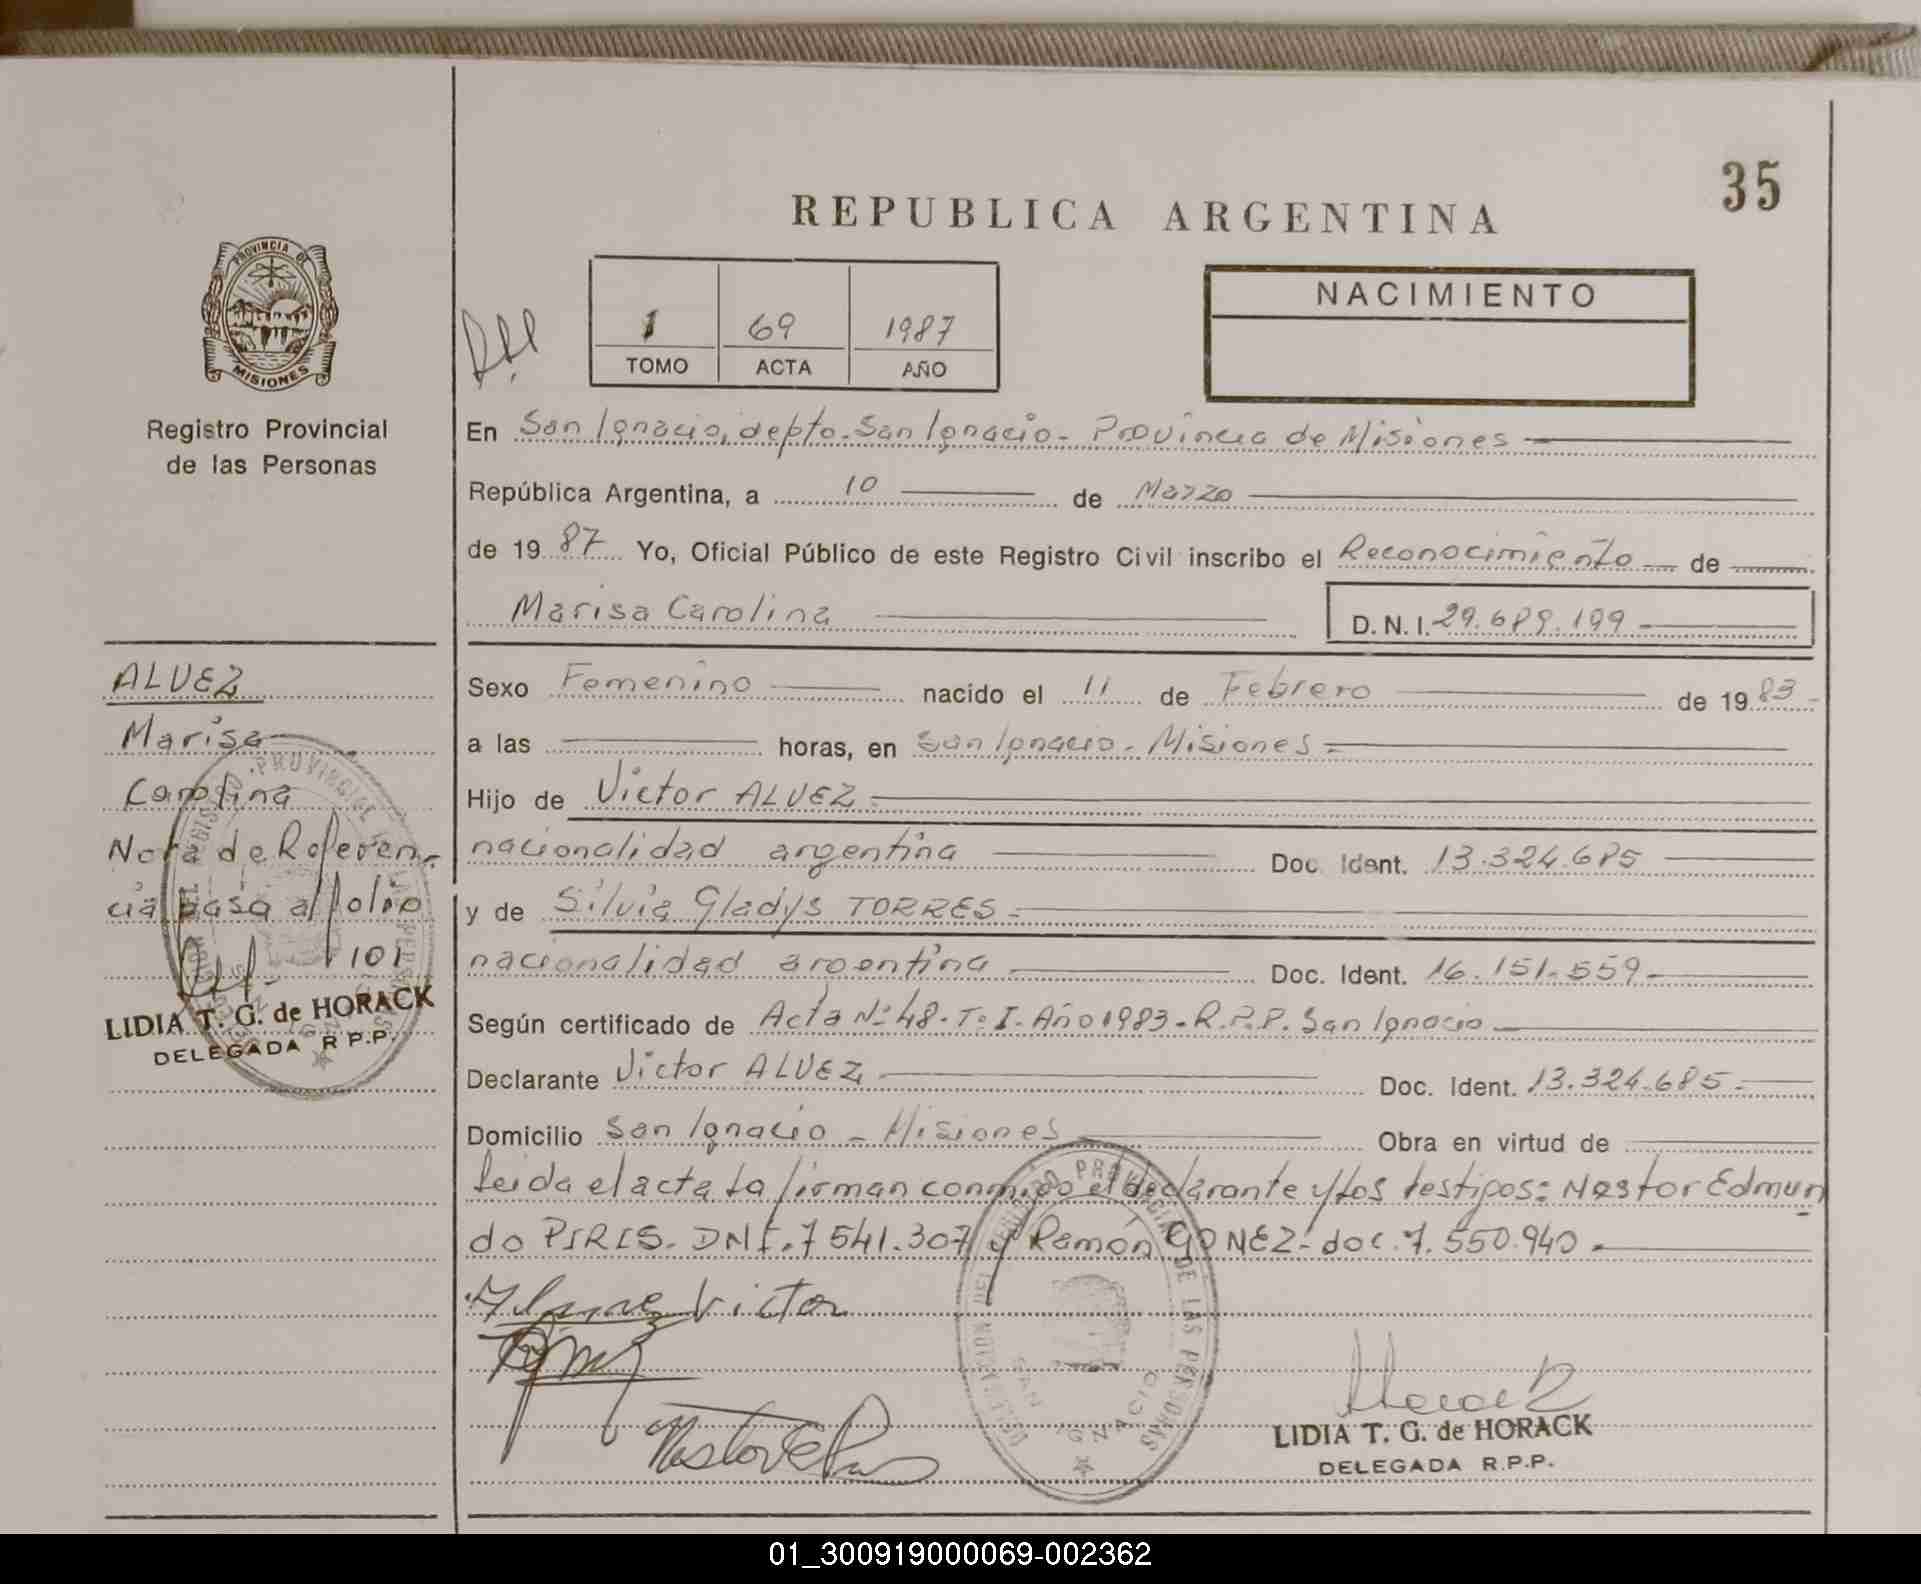 35
REPUBLICA ARGENTINA
PROVINCIA DE
MISIONES
Registro Provincial
de las Personas
1 69 1987
TOMO ACTA AÑO
NACIMIENTO
En San Ignacio, depto. San Ignacio - Provincia de Misiones
República Argentina, a 10 de Marzo
de 1987 Yo, Oficial Público de este Registro Civil inscribo el Reconocimiento de
Marisa Carolina D. N. I. 29.689.199
ALVEZ
Marisa
Carolina
Nota de Referen-
cia pasa al folio
101
LIDIA T. G. de HORACK
DELEGADA R P.P.
Sexo Femenino nacido el 11 de Febrero de 1983
a las horas, en San Ignacio - Misiones
Hijo de Victor ALVEZ
nacionalidad argentina Doc. Ident. 13.324.685
y de Silvia Gladys TORRES
nacionalidad argentina Doc. Ident. 16.151.559
Según certificado de Acta Nº 48 - Tº I - Año 1983 - R.P.P. San Ignacio
Declarante Victor ALVEZ Doc. Ident. 13.324.685
Domicilio San Ignacio - Misiones Obra en virtud de
Leida el acta la firman conmigo el declarante y los testigos: Nestor Edmun
do PIRIS. DNI. 7 541.307 y Ramón GOMEZ - doc. 7.550.940
Victor
DELEGACION DEL REGISTRO PROVINCIAL DE LAS PERSONAS
SAN IGNACIO
LIDIA T. G. de HORACK
DELEGADA R.P.P.
01_300919000069-002362